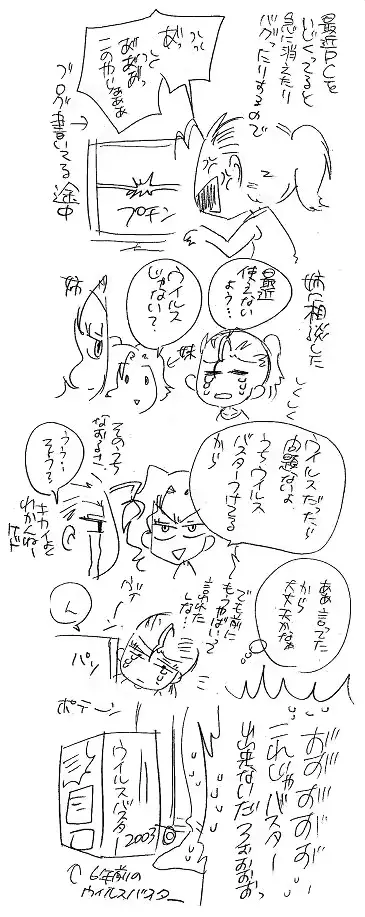 最近PCを
いじくってると
急に消えたり
バグったりするので
あ゛っ
あ゛あ゛あ゛っ
このやじゅあぁぁ
ブログ書いてる途中
プチン
姉に相談した
しくしく
最近
使えない
よう…
ウイルス
じゃない?
妹
姉
ウイルスだったら
問題ないよ
うちウイルス
バスターつけてる
から
そのうち
なおるさ
うう…
そうっス…
キカイよく
わかんねー
ゲド
ああ言ってた
から
大丈夫かなぁ
でも前に
もうやばいって
言われた
しな…
ん
パソ
ポテーン
お゛お゛お゛お゛お゛
これじゃバスター
出来ないだろぉぉぉぉっ
ウイルスバスター2003
6年前の
ウイルスバスター